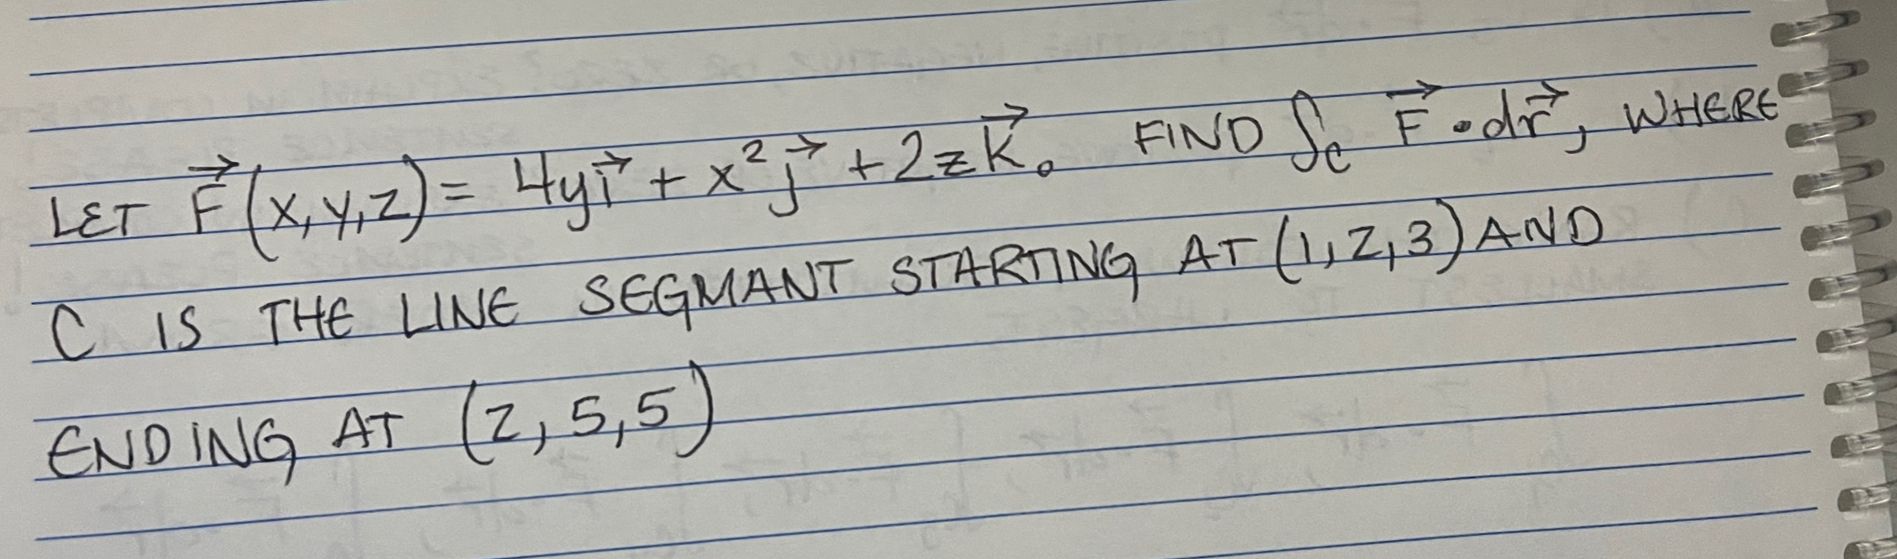 LET F⃗(x,y,z) = 4yi⃗ + x²j⃗ + 2zk⃗. FIND ∫_C F⃗ • dr⃗, WHERE
C IS THE LINE SEGMANT STARTING AT (1,2,3) AND
ENDING AT (2,5,5)